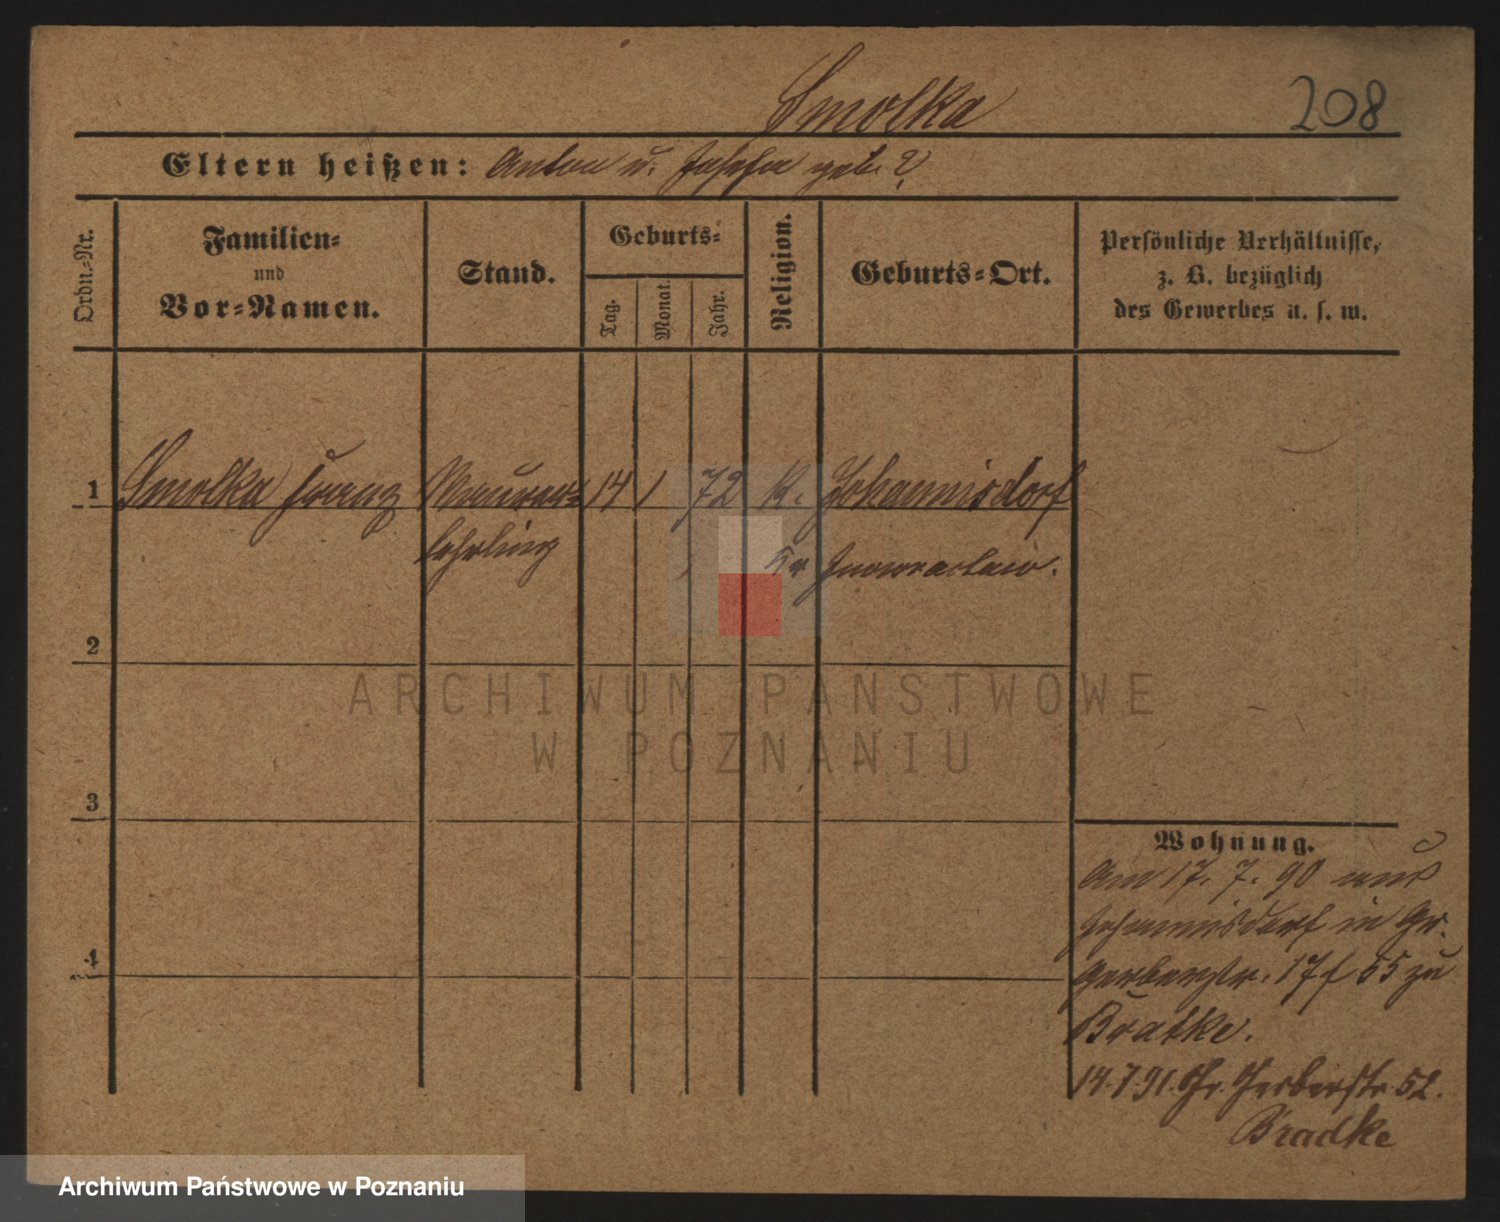 Smolka
208
Eltern heißen: Anton u. Josefa geb. ?
Ordn.-Nr.
Familien-
und
Vor-Namen.
Stand.
Geburts-
Tag.
Monat.
Jahr.
Religion.
Geburts-Ort.
Persönliche Verhältnisse,
z. B. bezüglich
des Gewerbes u. s. w.
1 Smolka Franz Maurer- 14 1 72 K. Johannisdorf
lehrling Kr Inowrazlaw.
2
3
4
ARCHIWUM PAŃSTWOWE
W POZNANIU
Wohnung.
Am 17. 7. 90 aus
Johannisdorf in Gr.
Gerberstr. 17 f 55 zu
Bratke.
14.7.91. Gr. Gerberstr. 52.
Bradke
Archiwum Państwowe w Poznaniu